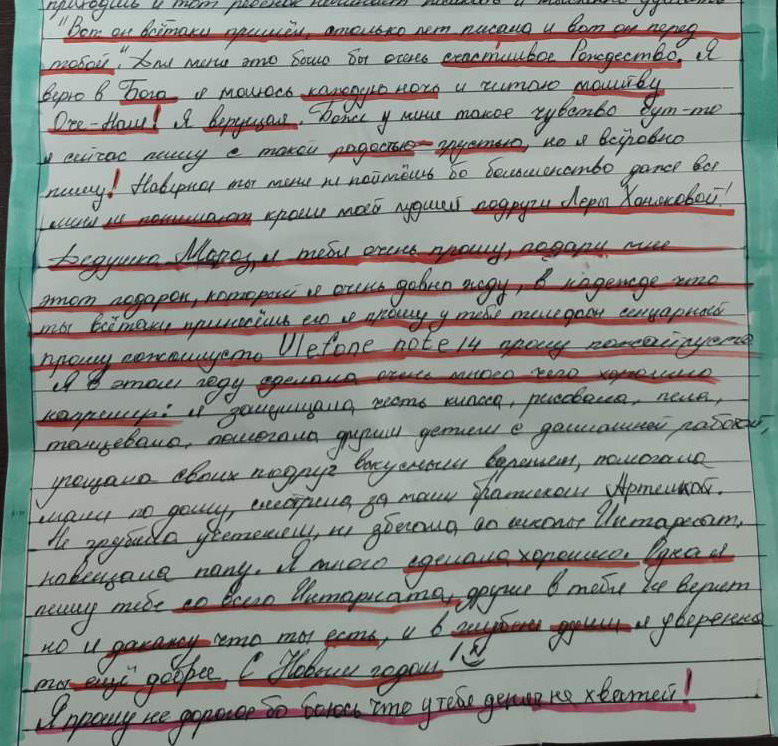 приходишь и тот ребёнок начинает
"Вот он всётаки пришёл, столько лет писала и вот он перед
тобой". Для меня это было бы очень счастливое Рождество. Я
верю в Бога я молюсь каждую ночь и читаю молитву
Оче-Наш! Я верущая. Боже у меня такое чувство бут-то
я сейчас пишу с такой радостью-грустью, но я всёровно
пишу! Навирное ты меня не поймёшь бо большенство даже все
меня не понимают кроме моей лудшей подруги Леры Хомяковой!
Дедушка Мороз, я тебя очень прошу, подари мне
этот подарок, который я очень давно жду, в надежде что
ты всётаки принесёшь его я прошу у тебя теледон сенцарный
прошу пожалуста Ulefone note 14 прошу пожайлуста
Я в этом году сделала очень много чего хорошего
напремер: я защищала честь класса, рисовала, пела,
танцевала, помогала другим детям с домашней работой,
угощала своих подруг вкусным варенем, помогала
маме по дому, смотрела за моим братиком Артемкой.
Не грубила учетелем, не збегала со школы Интарнат,
навещала папу. Я много сделала хорошего. Одна я
пишу тебе со всего Интарната, другие в тебя не верят
но я дакажу что ты есть, и в глубине души я уверенна
ты ещё добрее С Новым годом!
Я прошу не дорогое бо боюсь что у тебя денег не хватей!